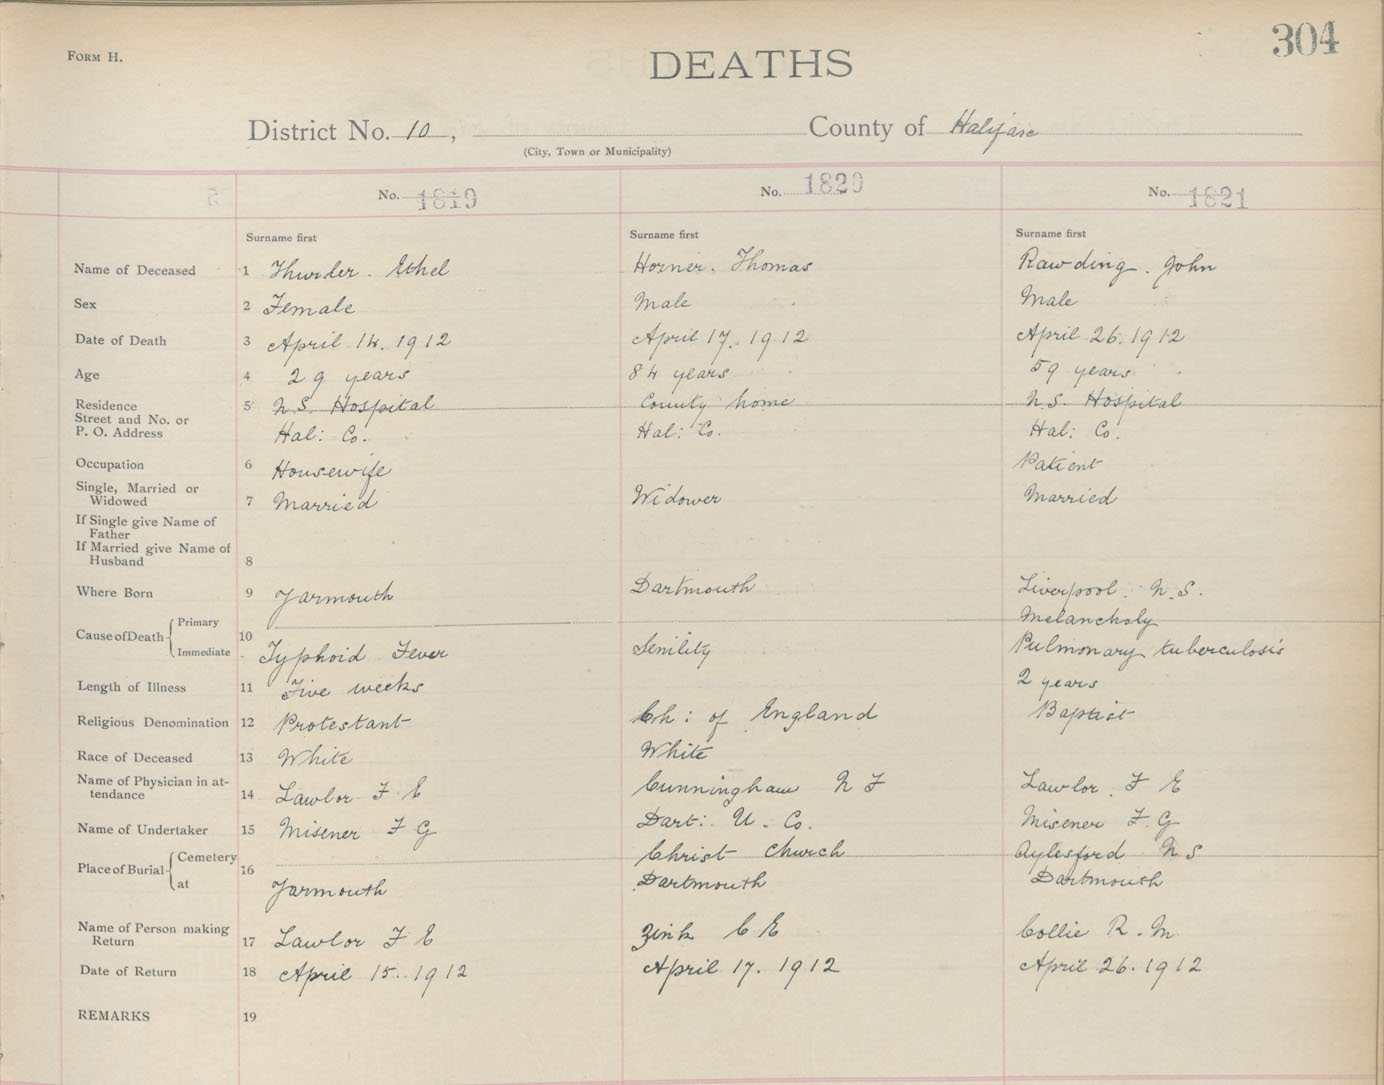 FORM H.
304
DEATHS
District No. 10, County of Halifax
(City, Town or Municipality)
No. 1819 No. 1820 No. 1821
Surname first Surname first Surname first
Name of Deceased 1 Ethel Horner. Thomas Rawding. John
Sex 2 Female Male Male
Date of Death 3 April 14. 1912 April 17. 1912 April 26. 1912
Age 4 29 years 84 years 59 years
Residence 5 N.S. Hospital County home N.S. Hospital
Street and No. or
P. O. Address Hal: Co. Hal: Co. Hal: Co.
Occupation 6 Housewife Patient
Single, Married or
Widowed 7 Married Widower Married
If Single give Name of
Father
If Married give Name of
Husband 8
Where Born 9 Yarmouth Dartmouth Liverpool. N.S.
Cause of Death Primary 10 Melancholy
Immediate Typhoid Fever Senility Pulmonary tuberculosis
Length of Illness 11 Five weeks 2 years
Religious Denomination 12 Protestant Ch: of England Baptist
Race of Deceased 13 White White
Name of Physician in at-
tendance 14 Lawlor F E Cunningham N F Lawlor. F E
Name of Undertaker 15 Misener F G Dart: U. Co. Misener F G
Place of Burial Cemetery 16 Christ Church Aylesford N S
at Yarmouth Dartmouth Dartmouth
Name of Person making
Return 17 Lawlor F E Zink C E Collie R. M
Date of Return 18 April 15. 1912 April 17. 1912 April 26. 1912
REMARKS 19